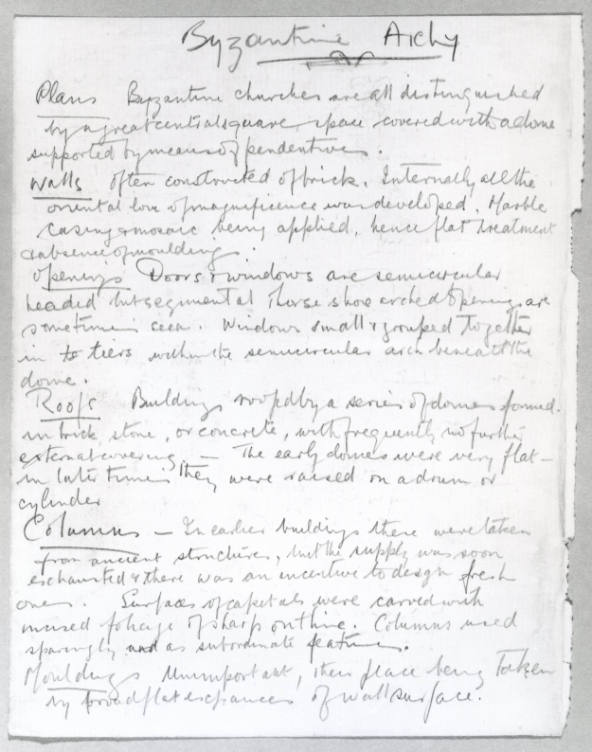 Byzantine Archy
Plans Byzantine churches are all distinguished
by a great central square space covered with a dome
supported by means of pendentives.
Walls often constructed of brick. Internally all the
oriental love of magnificence was developed. Marble
casing & mosaic being applied, hence flat treatment
& absence of moulding.
Openings Doors & windows are semicircular
headed but segmental & horse shoe arched openings are
sometimes seen. Windows small & grouped together
in tiers within the semicircular arch beneath the
dome.
Roofs Buildings roofed by a series of domes formed
in brick, stone, or concrete, with frequently no further
external covering – The early domes were very flat –
in later times they were raised on a drum or
cylinder
Columns – In earlier buildings these were taken
from ancient structures, but the supply was soon
exhausted & there was an incentive to design fresh
ones. Surfaces of capitals were carved with
incised foliage of sharp outline. Columns used
sparingly and as subordinate features.
Mouldings Unimportant, their place being taken
by broad flat expanses of wall surface.